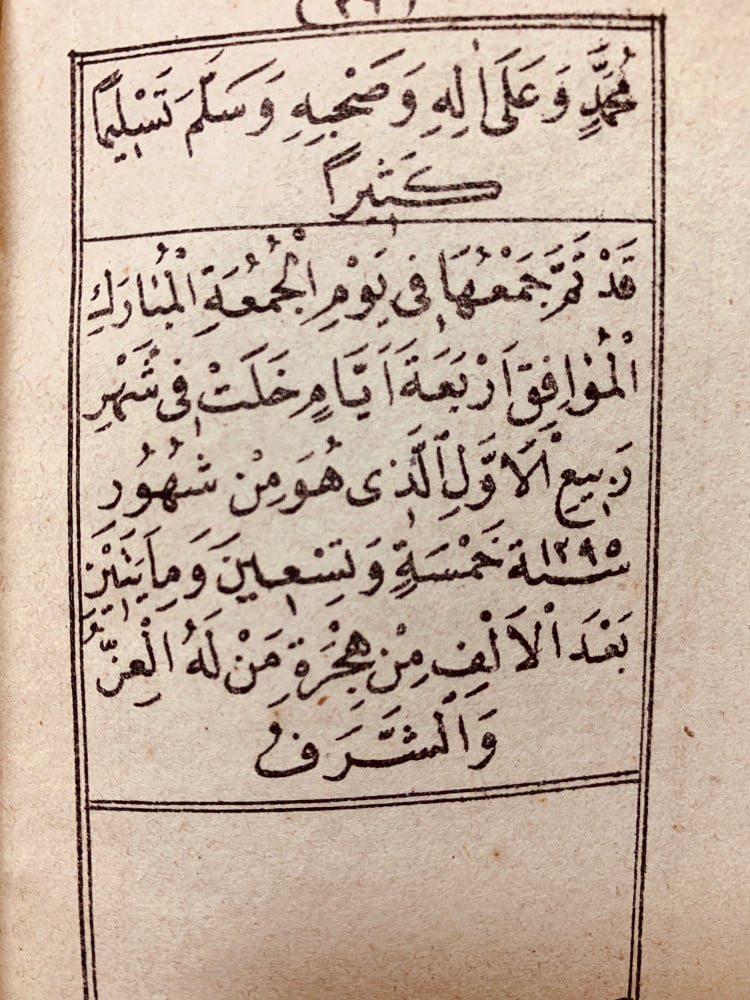 مُحَمَّدٍ وَعَلَى اٰلِهِ وَصَحْبِهِ وَسَلَّمَ تَسْلِيمًا
كَثِيرًا
قَدْ تَمَّ جَمْعُهَا فِى يَوْمِ الْجُمُعَةِ الْمُبَارَكِ
الْمُوَافِقِ اَرْبَعَةَ اَيَّامٍ خَلَتْ فِى شَهْرِ
رَبِيعِ الْاَوَّلِ الَّذِى هُوَ مِنْ شُهُورِ
سنة ١٢٩٥ خَمْسَةٍ وَتِسْعِينَ وَمِايَتَيْنِ
بَعْدَ الْاَلْفِ مِنْ هِجْرَةِ مَنْ لَهُ الْعِزُّ
وَالشَّرَفُ